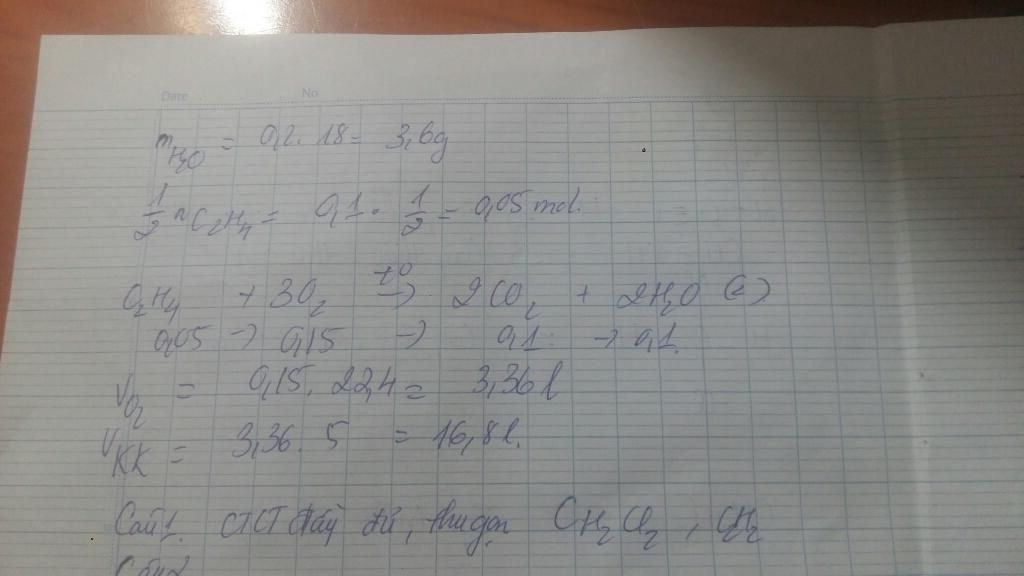 Date No
mH₂O = 0,2. 18 = 3,6g
1/2 nC₂H₄ = 0,1. 1/2 = 0,05 mol.
C₂H₄ + 3O₂ t⁰→ 2CO₂ + 2H₂O (2)
0,05 → 0,15 → 0,1 → 0,1.
VO₂ = 0,15. 22,4 = 3,36 l
VKK = 3,36. 5 = 16,8 l.
1. CTCT đầy đủ, thu gọn CH₂Cl₂, CH₂